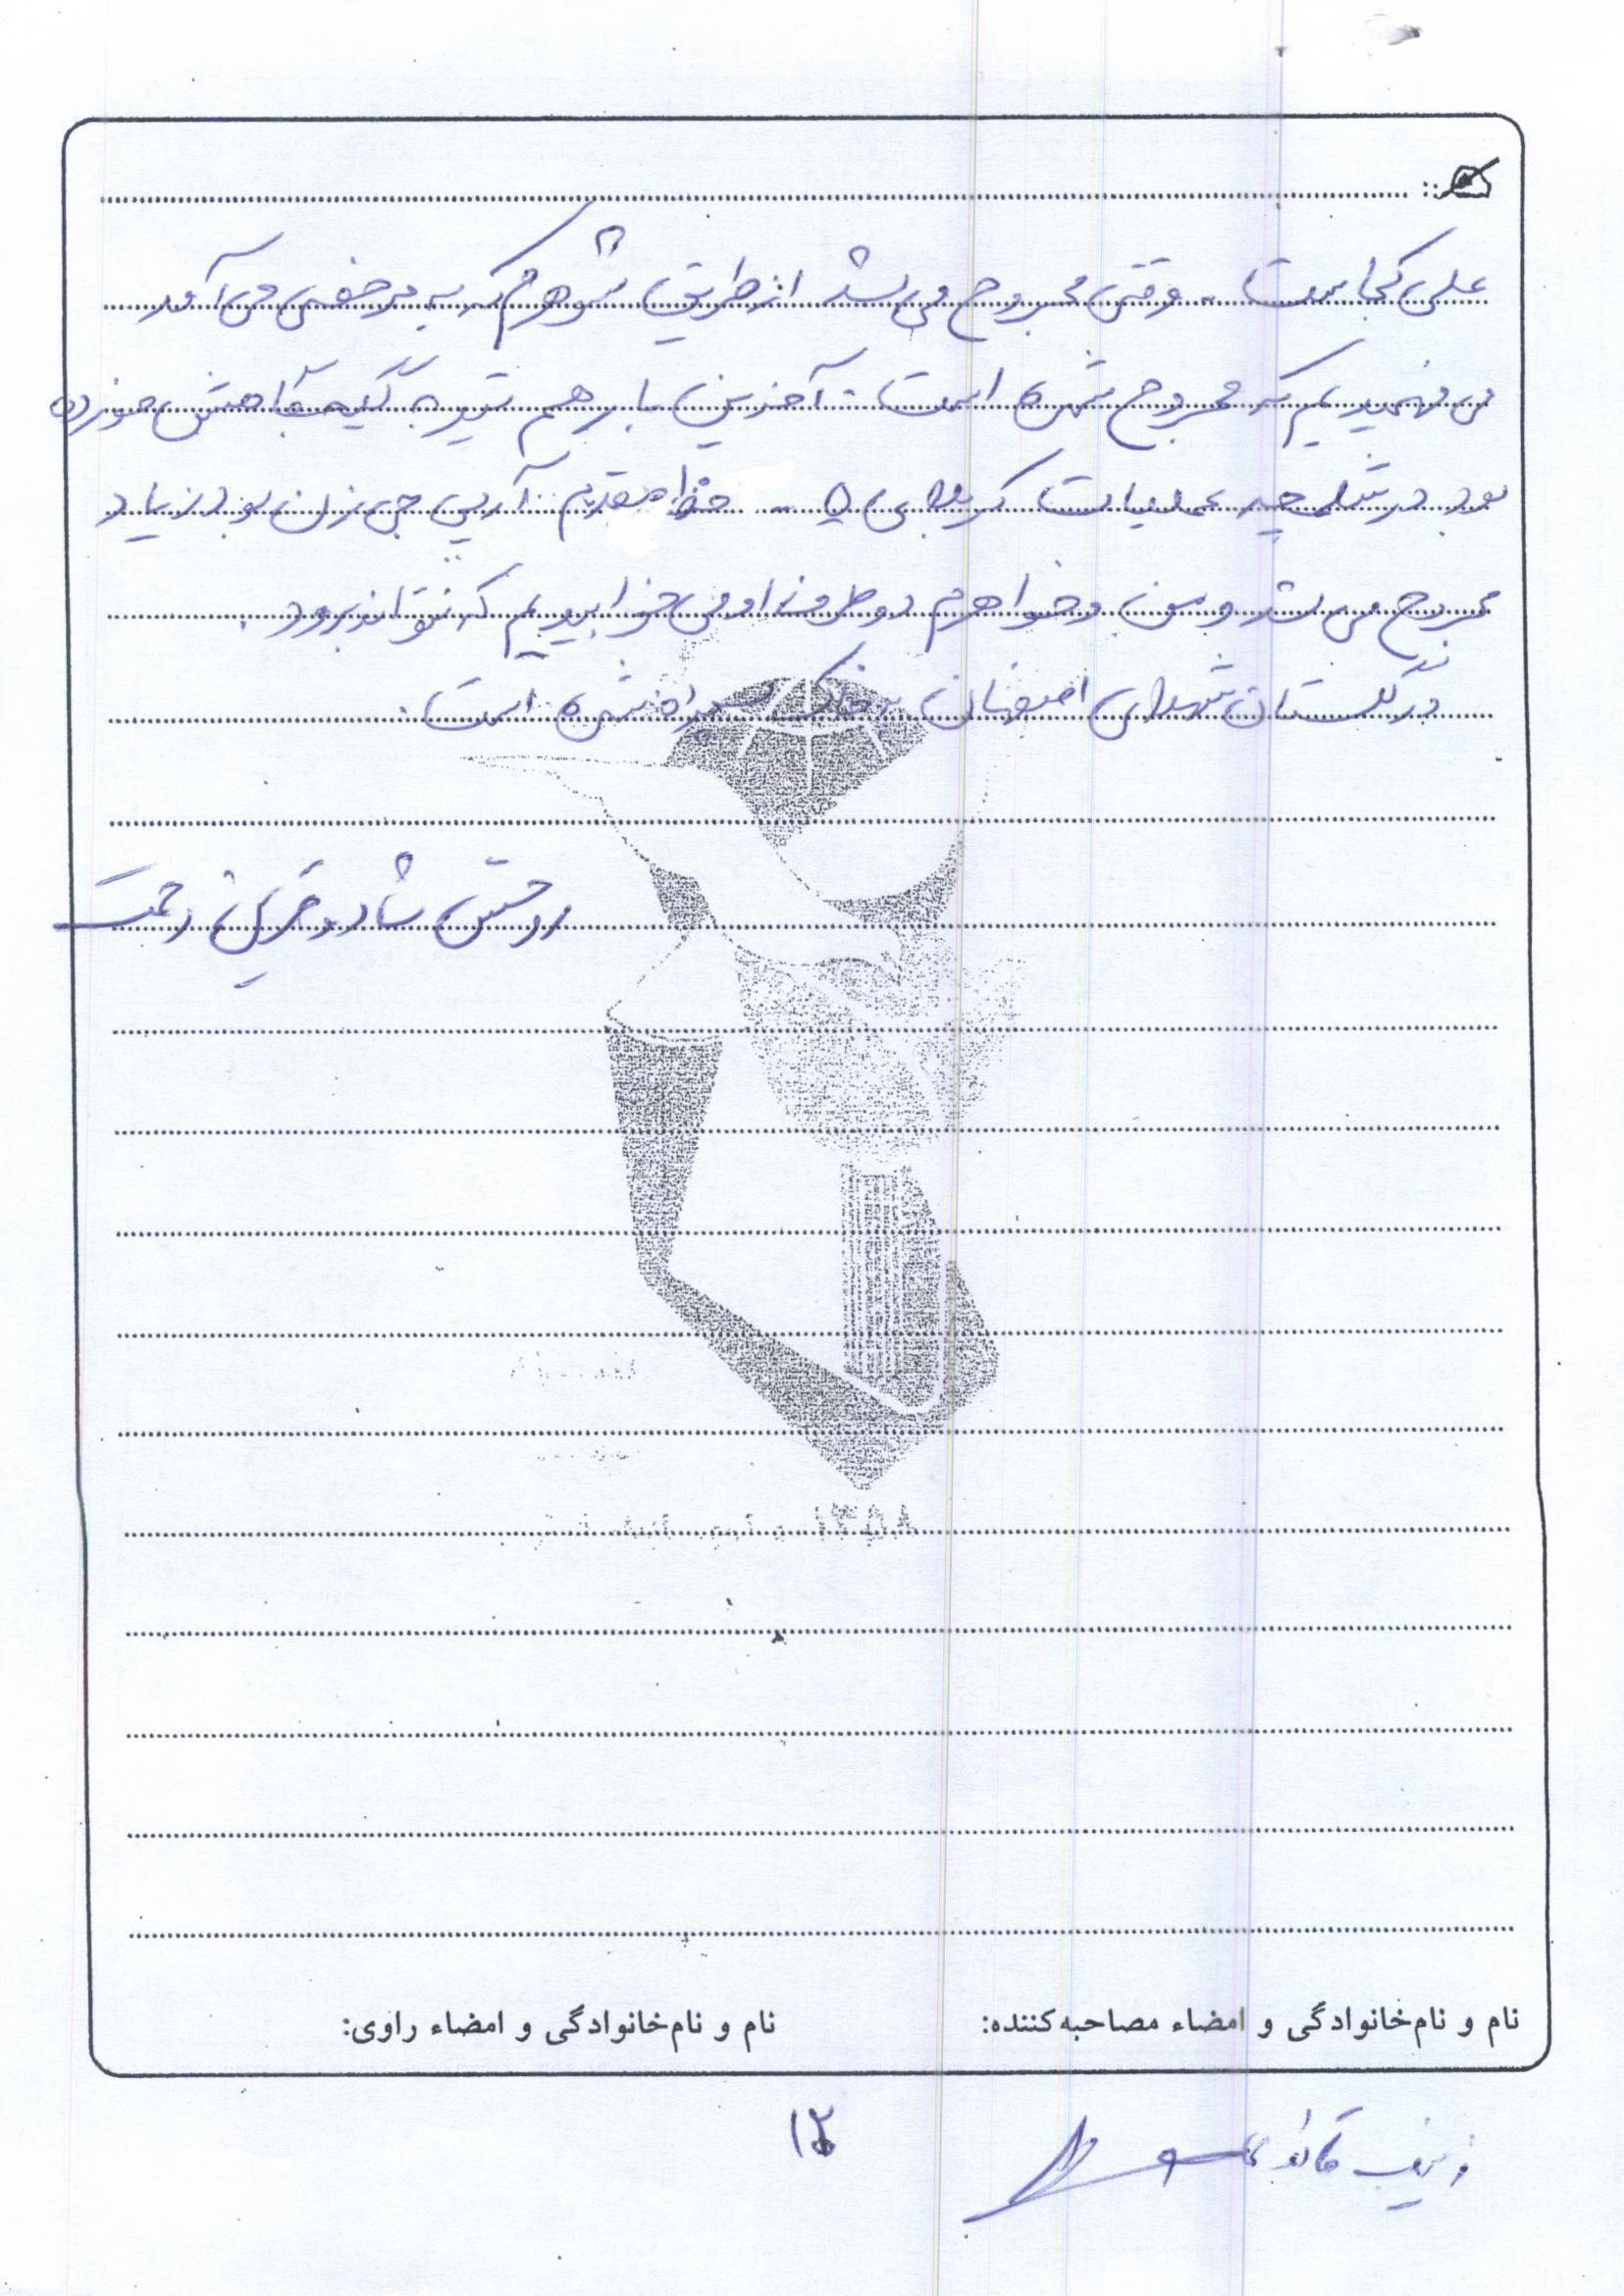 علی کجاست . وقتی مجروح می‌شد از طریق شوهرم که به مرخصی می‌آمد
می‌فهمیدیم که مجروح شده است . آخرین بار هم تیر به خورده
بود در شلمچه عملیات کربلای ۵ .. خط مقدم آرپی جی زن بود زیاد
مجروح می‌شد و من و خواهرم دو طرف او می‌خوابیدیم که نتواند برود .
در گلستان شهدای اصفهان به خاک سپرده شده است .
روحش شاد و قرین رحمت
۱۳۵۸
نام و نام‌خانوادگی و امضاء مصاحبه‌کننده:
نام و نام‌خانوادگی و امضاء راوی:
زینب
۱۲